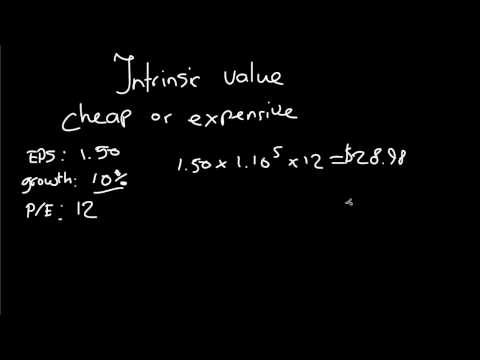 Intrinsic value
cheap or expensive
EPS: 1.50
growth: 10%
P/E: 12
1.50 x 1.10⁵ x 12 = $28.98